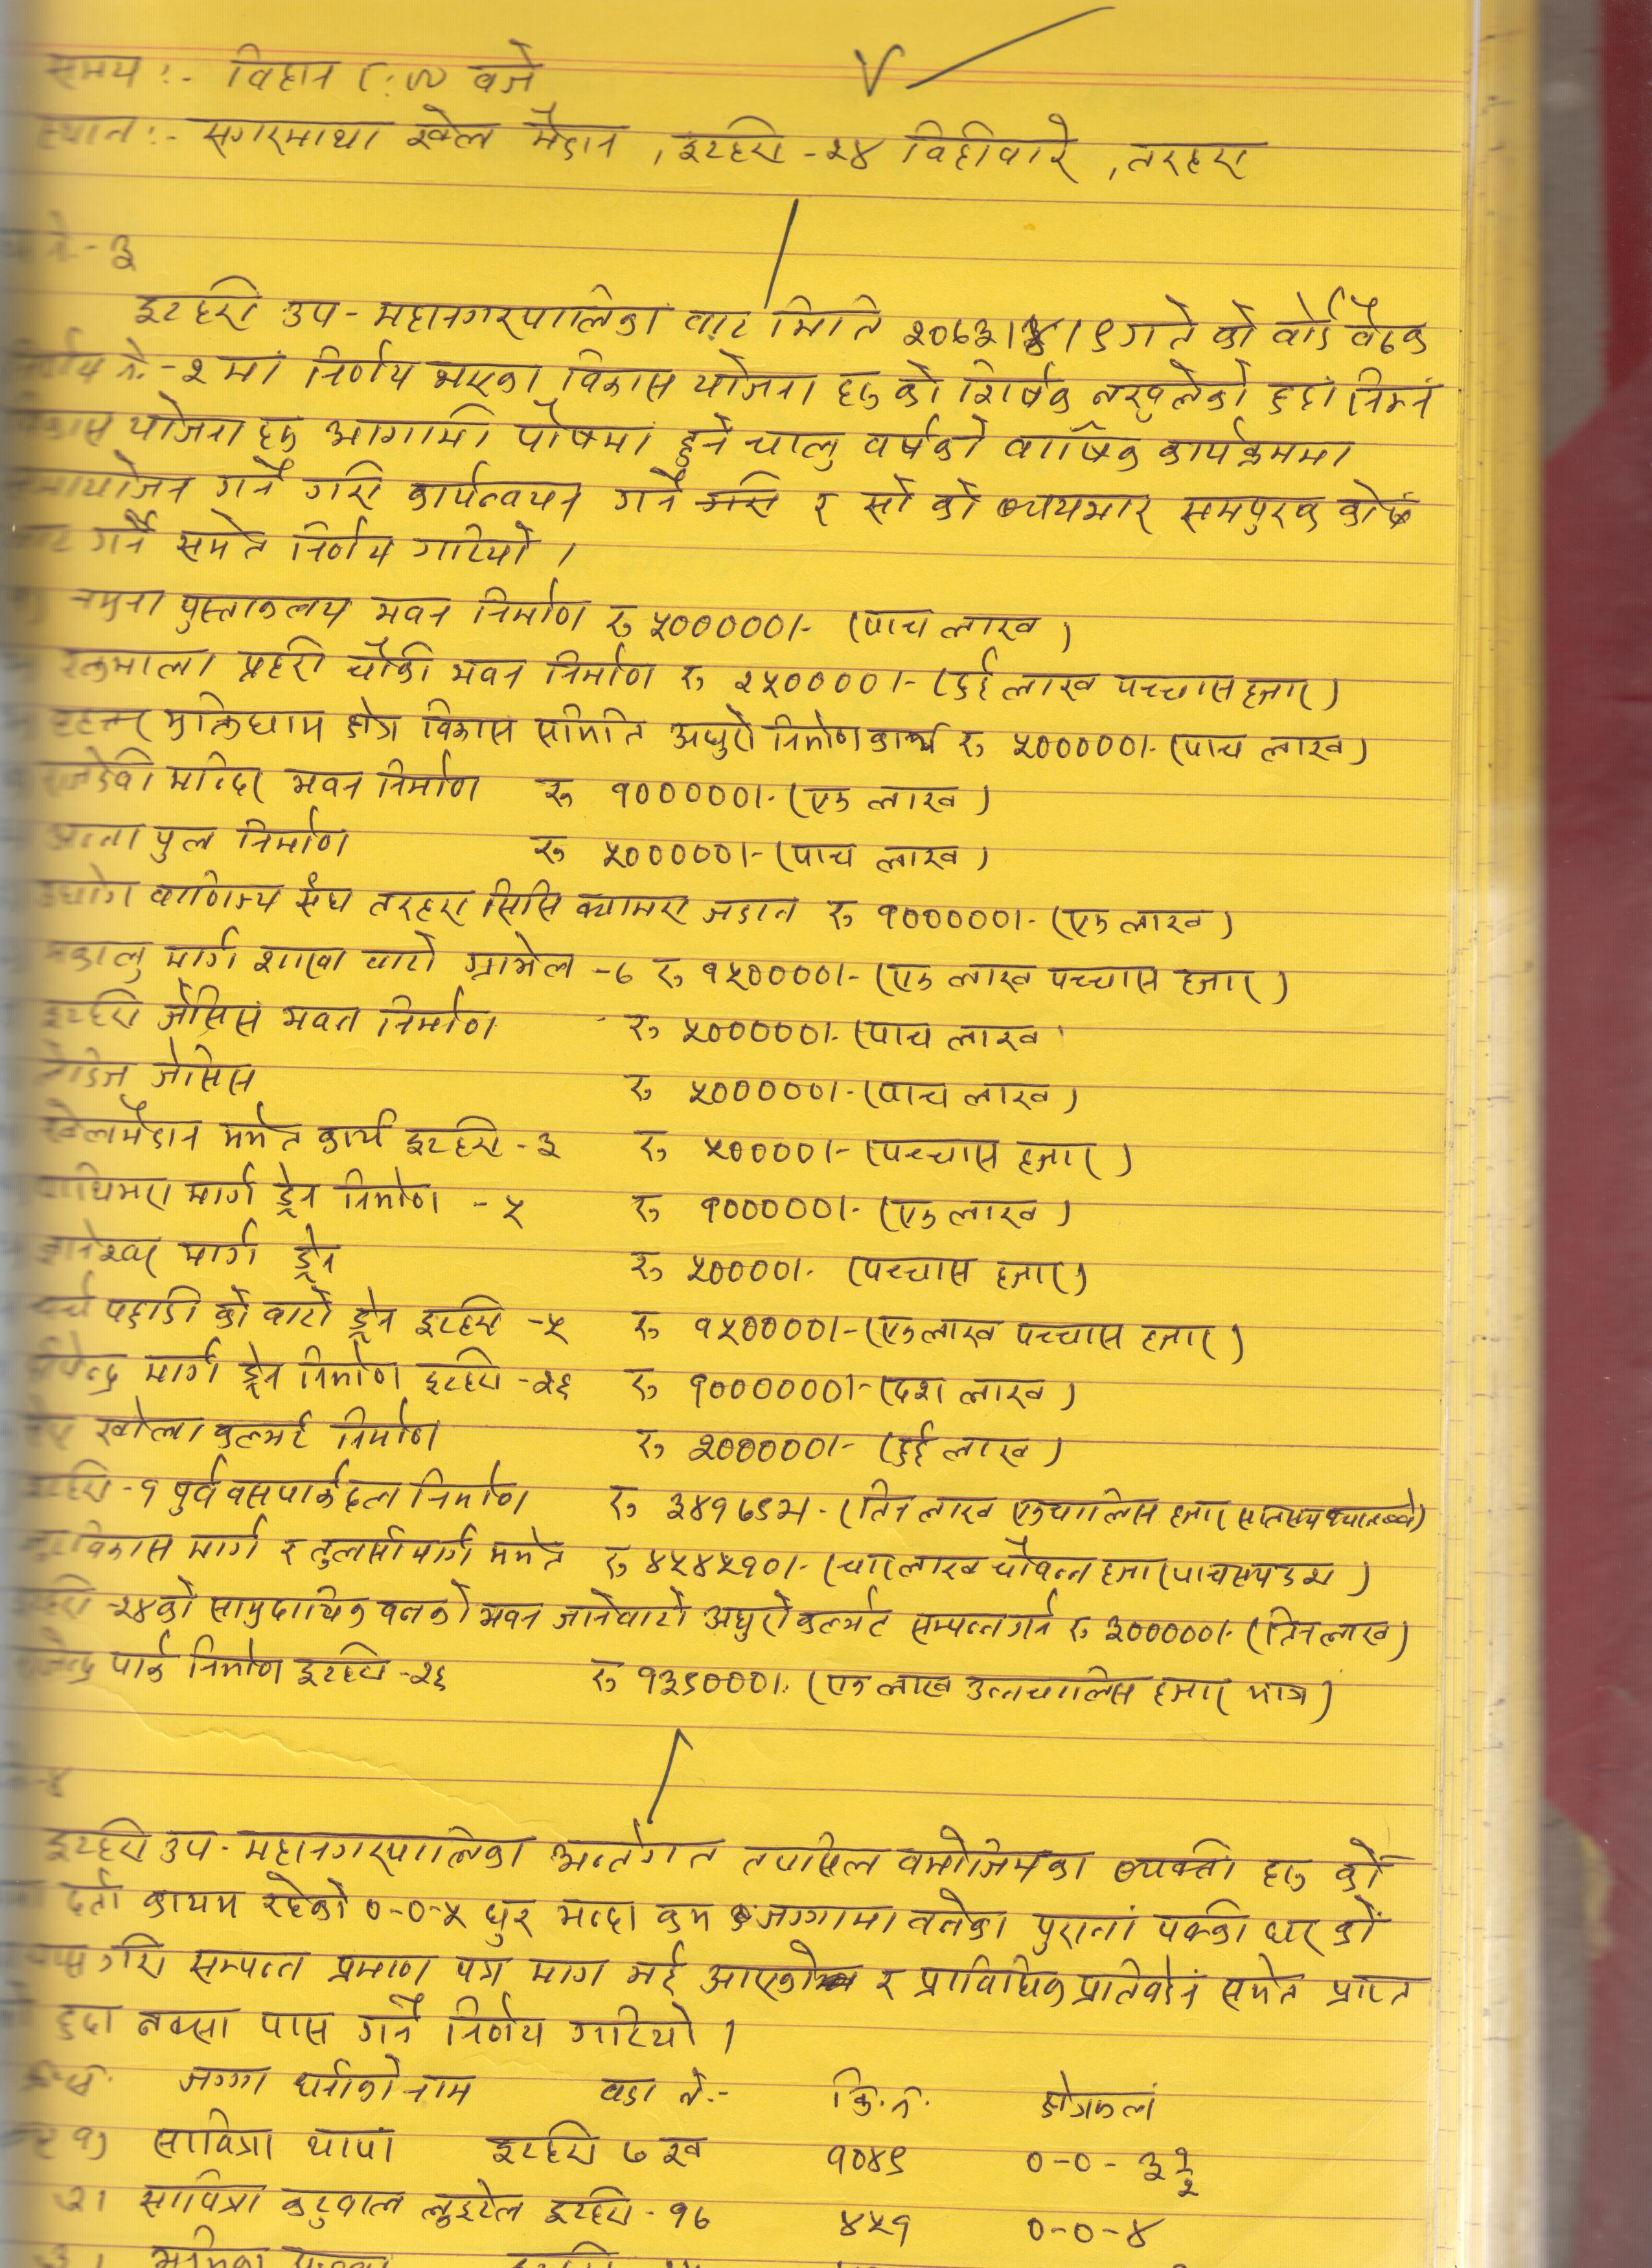 समय :- विहान ८:०० वजे
स्थान :- सगरमाथा खेल मैदान , इटहरी -२४ विहीवारे , तरहरा
-३
इटहरी उप-महानगरपालिका वाट मिति २०७३।४।९ गते को वोर्ड वैठक
निर्णय नं.-२मा निर्णय भएका विकास योजना हरु को शिर्षक नखुलेको हुदा निम्न
विकास योजना हरु आगामी पौषमा हुने चालु वर्षको वार्षिक कार्यक्रममा
समायोजन गर्ने गरी कार्यन्वयन गर्ने गरी र सो को व्ययभार समपुरक कोष
वाट गर्ने समेत निर्णय गरियो ।
नमुना पुस्ताकलय भवन निर्माण रु ५०००००।- (पाच लाख )
रत्नमाला प्रहरी चौकी भवन निर्माण रु २५००००।- (दुई लाख पच्चास हजार)
मुक्तिधाम क्षेत्र विकास समिति अधुरो निर्माण कार्य रु ५०००००।- (पाच लाख)
मन्दिर भवन निर्माण रु १०००००।- (एक लाख )
पुल निर्माण रु ५०००००।- (पाच लाख )
उद्योग वाणिज्य संघ तरहरा सिसि क्यामरा जडान रु १०००००।- (एक लाख )
मकालु मार्ग शाखा वाटो ग्राभेल -७ रु १५००००।- (एक लाख पच्चास हजार )
इटहरी जेसिस भवन निर्माण रु ५०००००।- (पाच लाख
जेसिस रु ५०००००।- (पाच लाख )
खेलमैदान मर्मत कार्य इटहरी -३ रु ५००००।- (पच्चास हजार )
पाथिभरा मार्ग ड्रेन निर्माण -५ रु १०००००।- (एक लाख )
ज्ञानेश्वर मार्ग ड्रेन रु ५००००।- (पच्चास हजार)
चर्च पछाडी को वाटो ड्रेन इटहरी -५ रु १५००००।- (एक लाख पच्चास हजार )
मार्ग ड्रेन निर्माण इटहरी -२६ रु १००००००।- (दश लाख )
खोला कल्भर्ट निर्माण रु २०००००।- (दुई लाख )
इटहरी -१ पुर्व वसपार्क ढल निर्माण रु ३४१७९५।- (तिन लाख एकचालिस हजार सातसय पंचानब्बे)
विकास मार्ग र तुलसी मार्ग मर्मत रु ४५४५१०।- (चार लाख चौवन्न हजार पाचसय दश )
इटहरी -२४को सामुदायिक वनको भवन जानेवाटो अधुरो कल्भर्ट सम्पन्न गर्न रु ३०००००।- (तिन लाख)
पार्क निर्माण इटहरी -२६ रु १३९०००।- (एक लाख उन्नचालिस हजार मात्र )
-४
इटहरी उप-महानगरपालिका अन्तर्गत तपसिल वमोजिमका व्यक्ती हरु को
दर्ता कायम रहेको ०-०-५ धुर भन्दा कम जग्गामा वनेका पुराना पक्की घर को
गरी सम्पन्न प्रमाण पत्र माग भई आएको र प्राविधिक प्रतिवेदन समेत प्राप्त
हुदा नक्सा पास गर्ने निर्णय गरियो ।
जग्गा धनीको नाम वडा नं.- कि.नं. क्षेत्रफल
१) सावित्रा थापा इटहरी ७ ख १०४९ ०-०-३१/२
२। सावित्रा कटुवाल लुइटेल इटहरी -१७ ४५१ ०-०-४